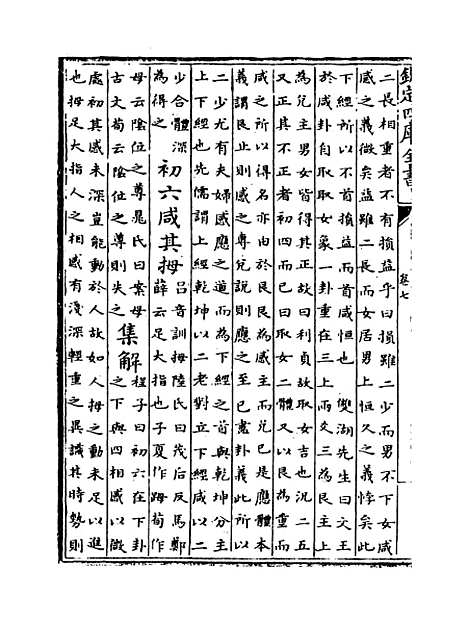 欽定四庫全書
卷七
二長相重者不有損益乎曰損雖二少而男不下女咸
感之義微矣益雖二長而女居男上恒久之義悖矣此
下經所以不首損益而首咸恒也 雙湖先生曰文王
於咸卦自取取女象一卦重在三上兩爻三為艮主上
為兌主男女皆得其正故曰利貞取女吉也況二五
又正其不正者初四而已曰取女二體又以艮為重而
咸之所以得名亦由於艮艮為感主而兌已是應體本
義謂艮止則感之專兌說則應之至已盡卦義此所以
二少尤有夫婦感應之道而為下經之首與乾坤分主
上下經也先儒謂上經乾坤以二老對立下經咸以二
少合體深
為得之
初六咸其拇
呂音訓拇陸氏曰茂后反馬鄭
薛云足大指也子夏作踇荀作
母云陰位之尊晁氏曰案母
古文荀云陰位之尊則失之
集解
程子曰初六在下卦
之下與四相感以微
處初其感未深豈能動於人故如人拇之動未足以進
也拇足大指人之相感有淺深輕重之異識其時勢則